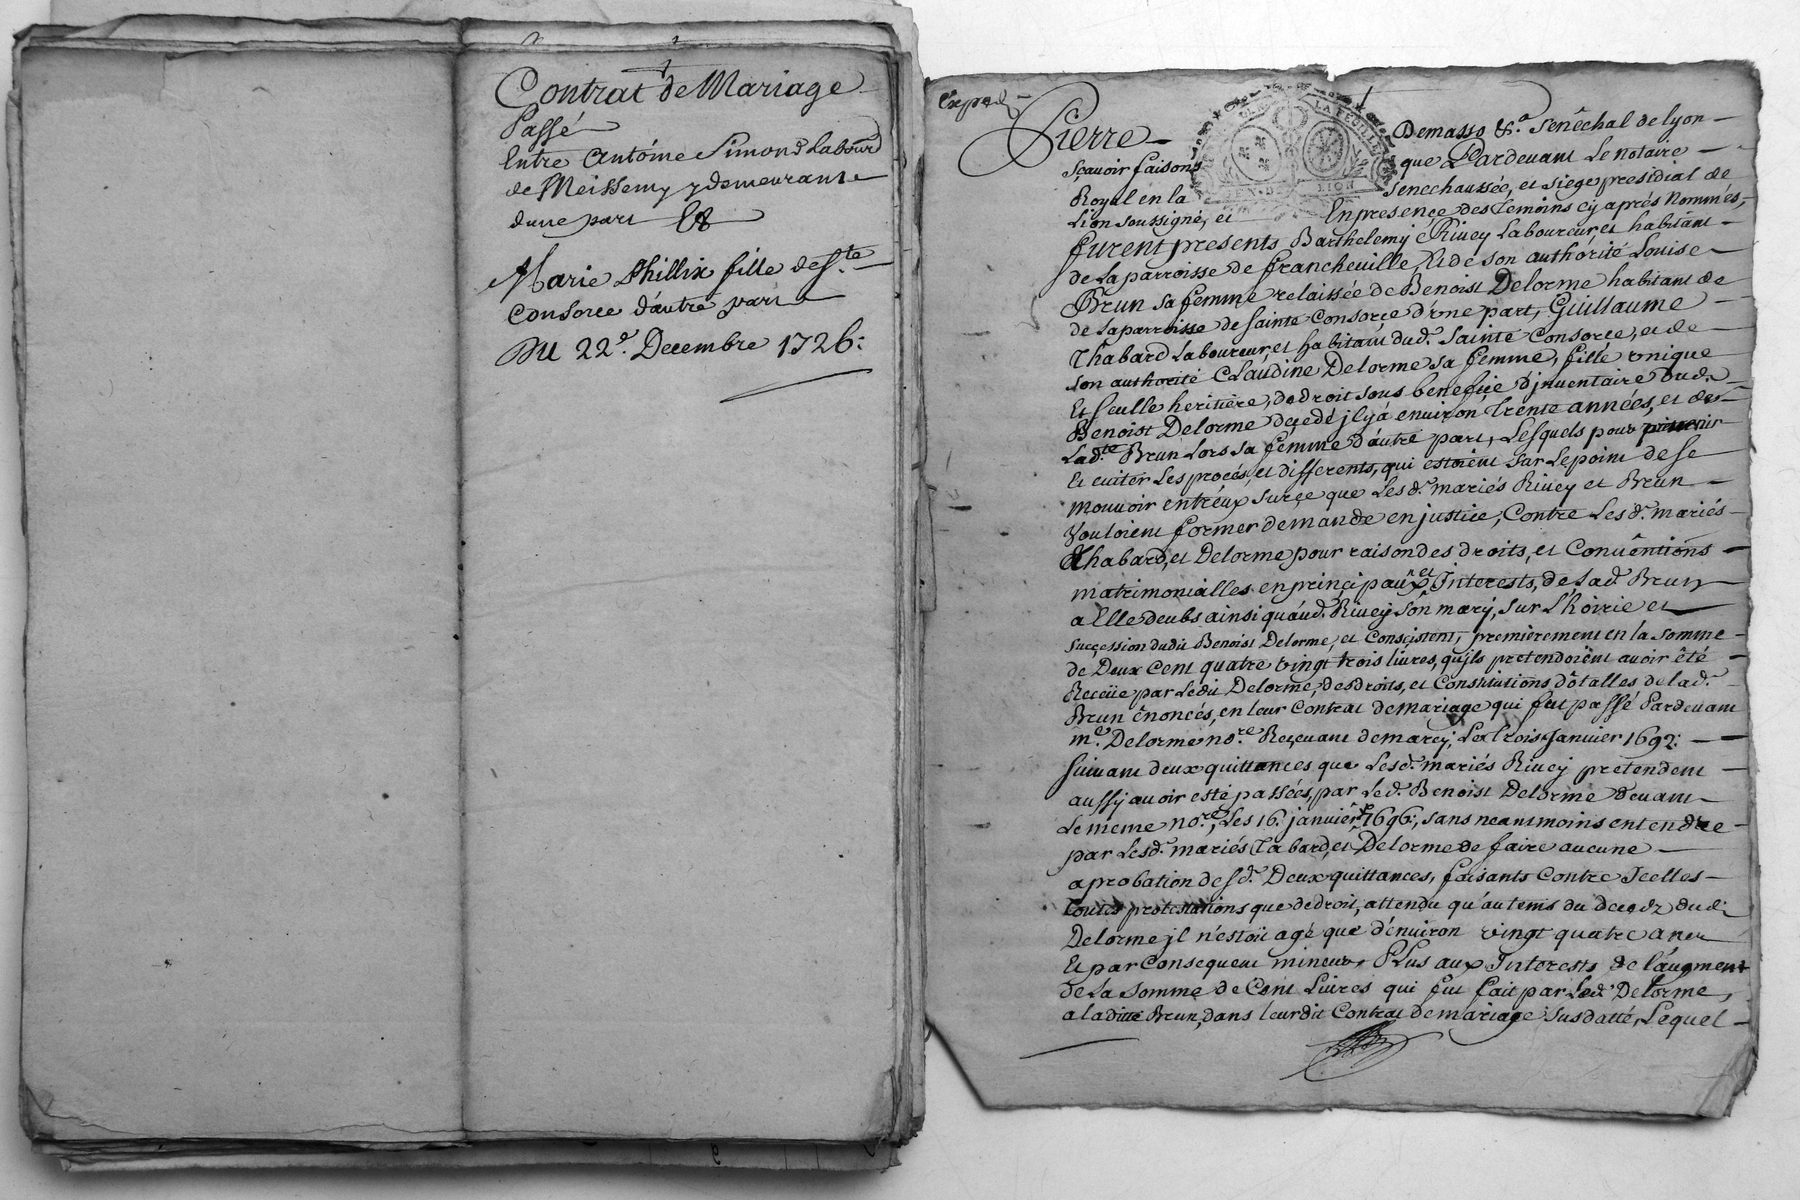 Contrat de Mariage
Passé
Entre Antoine Simond Laboureur
de Meissemy y demeurant
dune part Et
Marie Phillix fille de Ste
Consorce d'autre part
Du 22e. Decembre 1726:
Exped.
Pierre Demasso &a. Senêchal de Lyon
sçavoir faisons que Pardevant Le notaire
Royal en la senechaussée, et siege presidial de
Lion soussigné, et En presençe des temoins cy aprés nommés,
furent presents Barthelemy Rivey Laboureur et habitant
de La parroisse de francheville, Et de son authorité Louise
Brun sa femme relaissée de Benoist Delorme habitant de
de La parroisse de sainte Consorce d'une part, Guillaume
Thabard Laboureur, et habitant dud. Sainte Consorce, et de
son authorité Claudine Delorme sa femme, fille unique
Et seulle heritière, de droit sous benefice d'jnventaire dud.
Benoist Delorme deçedé jl y a environ trente années, et de
Ladte. Brun Lors sa femme d'autre part, Lesquels pour
Et eviter Les procés, et differents, qui estoient sur Le point de se
mouvoir entréux surçe que Lesd. mariés Rivey et Brun
Vouloient former demande en justice, Contre Lesd. mariés
Thabard, et Delorme pour raison des droits, et Convêntions
matrimonialles en prinçipaux et Interests, de Lad. Brun
a Elle deubs ainsi quáud. Rivey son mary, sur L'hoirie et
sucçession dudit Benoist Delorme, et Consçistent, premièrement en la somme
de Deux Cent quatre vingt trois livres, qu'jls pretendoient avoir êté
Reçeüe par Ledit Delorme, des droits, et Constitutions dôtalles de lad.
Brun ênoncés, en leur Contrat de mariage qui fut passé Pardevant
me. Delorme nore. Reçevant de marcy, Le trois janvier 1692:
suivant deux quittances que Lesd. mariés Rivey pretendent
aussy avoir esté passées, par Led. Benoist Delorme devant
Le meme nore, Les 16. janvier 1696:, sans neantmoins entendre
par Lesd. mariés Tabard, et Delorme de faire aucune
aprobation desd. Deux quittances, faisants Contre Icelles
toutes protestations que de droit, attendu qu'au tems du decedz dud.
Delorme jl n'estoit agé que d'environ vingt quatre ans
Et par Consequent mineur, Plus aux Interests de L'áugment
de La somme de Cent Livres qui fut fait par Led. Delorme,
a laditte Brun, dans leurdit Contrat de mariage susdatté, Lequel